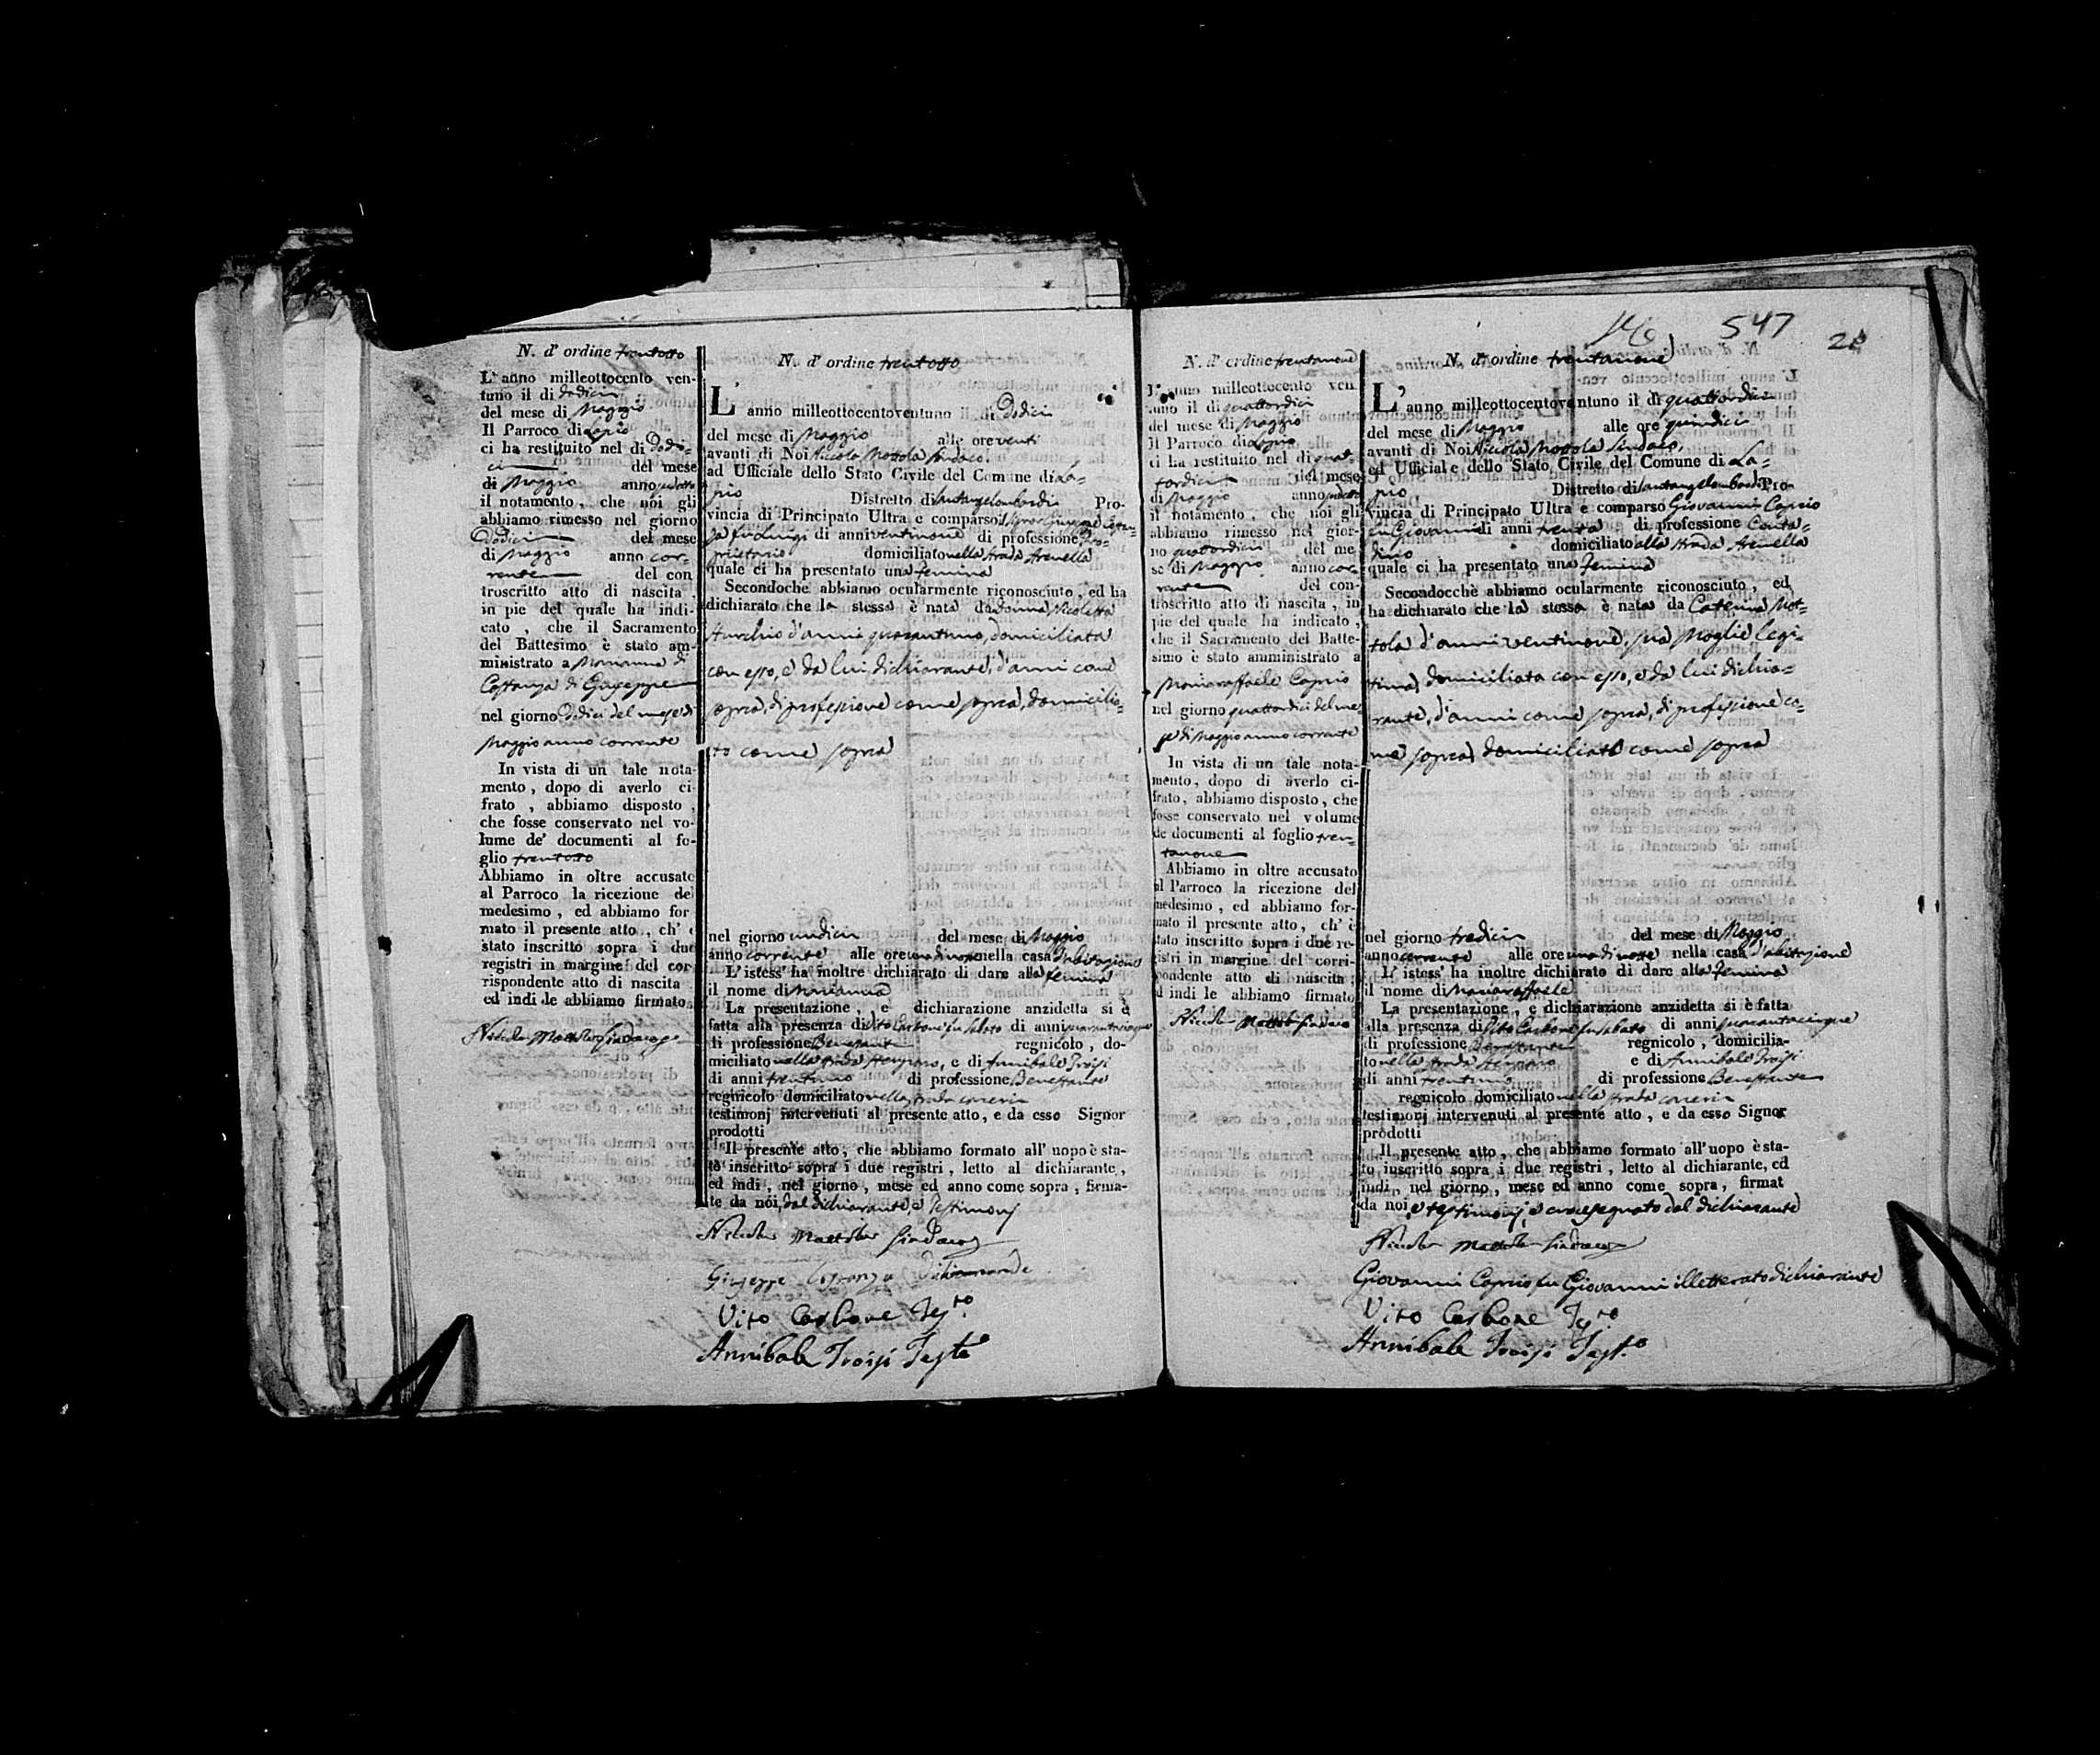 N. d' ordine trentotto
L'anno milleottocento ven-
tuno il di dodici
del mese di Maggio
Il Parroco di Lapio
ci ha restituito nel di Dodi-
ci del mese
di Maggio anno
il notamento, che noi gli
abbiamo rimesso nel giorno
Dodici del mese
di Maggio anno cor-
rente del con
troscritto atto di nascita,
in pie del quale ha indi-
cato, che il Sacramento
del Battesimo è stato am-
ministrato a Marianna di
Costanza di Giuseppe
nel giorno Dodici del mese di
Maggio anno corrente
In vista di un tale nota-
mento, dopo di averlo ci
frato, abbiamo disposto,
che fosse conservato nel vo-
lume de' documenti al fo-
glio trentotto
Abbiamo in oltre accusato
al Parroco la ricezione del
medesimo, ed abbiamo for
mato il presente atto, ch' è
stato inscritto sopra i due
registri in margine del cor
rispondente atto di nascita
ed indi le abbiamo firmato
Nicola Mottola Sindaco
N. d' ordine trentotto
L' anno milleottocentoventuno il di Dodici
del mese di Maggio alle ore venti
avanti di Noi Niccola Mottola Sindaco
ad Uffiziale dello Stato Civile del Comune di La-
pio Distretto di Santangelombardi Pro-
vincia di Principato Ultra è comparso il Signor Giuseppe Costan-
za fu Luigi di anni ventinove di professione Pro-
prietario domiciliato nella strada Arenella
quale ci ha presentato una femina
Secondoche abbiamo ocularmente riconosciuto, ed ha
dichiarato che la stessa è nata da donna Nicoletta
d'anni quarantuno, domiciliata
con esso, e da lui dichiarante, d'anni come
sopra, di professione come sopra, domicilia-
to come sopra
nel giorno undici del mese di Maggio
anno corrente alle ore una di notte nella casa d'abitazione
L'istess' ha inoltre dichiarato di dare alla femina
il nome di Marianna
La presentazione, e dichiarazione anzidetta si è
fatta alla presenza di Vito Carbone fu Sabato di anni quarantacinque
di professione Benestante regnicolo, do-
miciliato nella strada, e di Annibale Troisi
di anni trentuno di professione Benestante
regnicolo domiciliato nella strada
testimonj intervenuti al presente atto, e da esso Signor
prodotti
Il presente atto, che abbiamo formato all' uopo è sta-
to inscritto sopra i due registri, letto al dichiarante,
ed indi, nel giorno, mese ed anno come sopra, firma-
te da noi, dal dichiarante e Testimonj
Nicola Mottola Sindaco
Giuseppe Costanza dichiarante
Vito Carbone Testo.
Annibale Troisi Testo
546 547 
N. d' ordine trentanove
L'anno milleottocento ven
tuno il di quattordici
del mese di Maggio
Il Parroco di Lapio
ci ha restituito nel di quat-
tordici del mese
di Maggio anno
il notamento, che noi gli
abbiamo rimesso nel gior-
no quattordici del me
se di Maggio anno cor-
rente del con-
troscritto atto di nascita, in
pie del quale ha indicato,
che il Sacramento del Batte-
simo è stato amministrato a
Mariaraffaele Caprio
nel giorno quattordici del me-
se di Maggio anno corrente
In vista di un tale nota-
mento, dopo di averlo ci-
frato, abbiamo disposto, che
fosse conservato nel volume
de documenti al foglio tren-
tanove
Abbiamo in oltre accusato
al Parroco la ricezione del
medesimo, ed abbiamo for-
mato il presente atto, ch' è
stato inscritto sopra i due re-
gistri in margine del corri-
spondente atto di nascita,
ed indi le abbiamo firmato
Nicola Mottola Sindaco
N. d' ordine trentanove
L' anno milleottocentoventuno il di quattordici
del mese di Maggio alle ore quindici
avanti di Noi Niccola Mottola Sindaco,
ed Uffiziale dello Stato Civile del Comune di La-
pio Distretto di Santangelombardi Pro-
vincia di Principato Ultra è comparso Giovanni Caprio
fu Giovanni di anni trenta di professione Conta-
dino domiciliato alla strada Arenella
quale ci ha presentato una femina
Secondocchè abbiamo ocularmente riconosciuto, ed
ha dichiarato che la stessa è nata da Caterina Mot-
tola d'anni ventinove, sua Moglie legi-
tima, domiciliata con esso, e da lui dichia-
rante, d'anni come sopra, di professione co-
me sopra, domiciliato come sopra
nel giorno tredici del mese di Maggio
anno corrente alle ore una di notte nella casa d'abitazione
L'istess' ha inoltre dichiarato di dare alla femina
il nome di Mariaraffaele
La presentazione, e dichiarazione anzidetta si è fatta
alla presenza di Vito Carbone fu Sabato di anni quarantacinque
di professione Benestante regnicolo, domicilia-
to nella strada e di Annibale Troisi
di anni trentuno di professione Benestante
regnicolo domiciliato nella strada
testimonj intervenuti al presente atto, e da esso Signor
prodotti
Il presente atto, che abbiamo formato all'uopo è sta-
to inscritto sopra i due registri, letto al dichiarante, ed
indi, nel giorno, mese ed anno come sopra, firmat
da noi, e testimonj, e crocesegnato dal dichiarante
Nicola Mottola Sindaco
Giovanni Caprio fu Giovanni illetterato dichiarante
Vito Carbone Testo.
Annibale Troisi Testo.